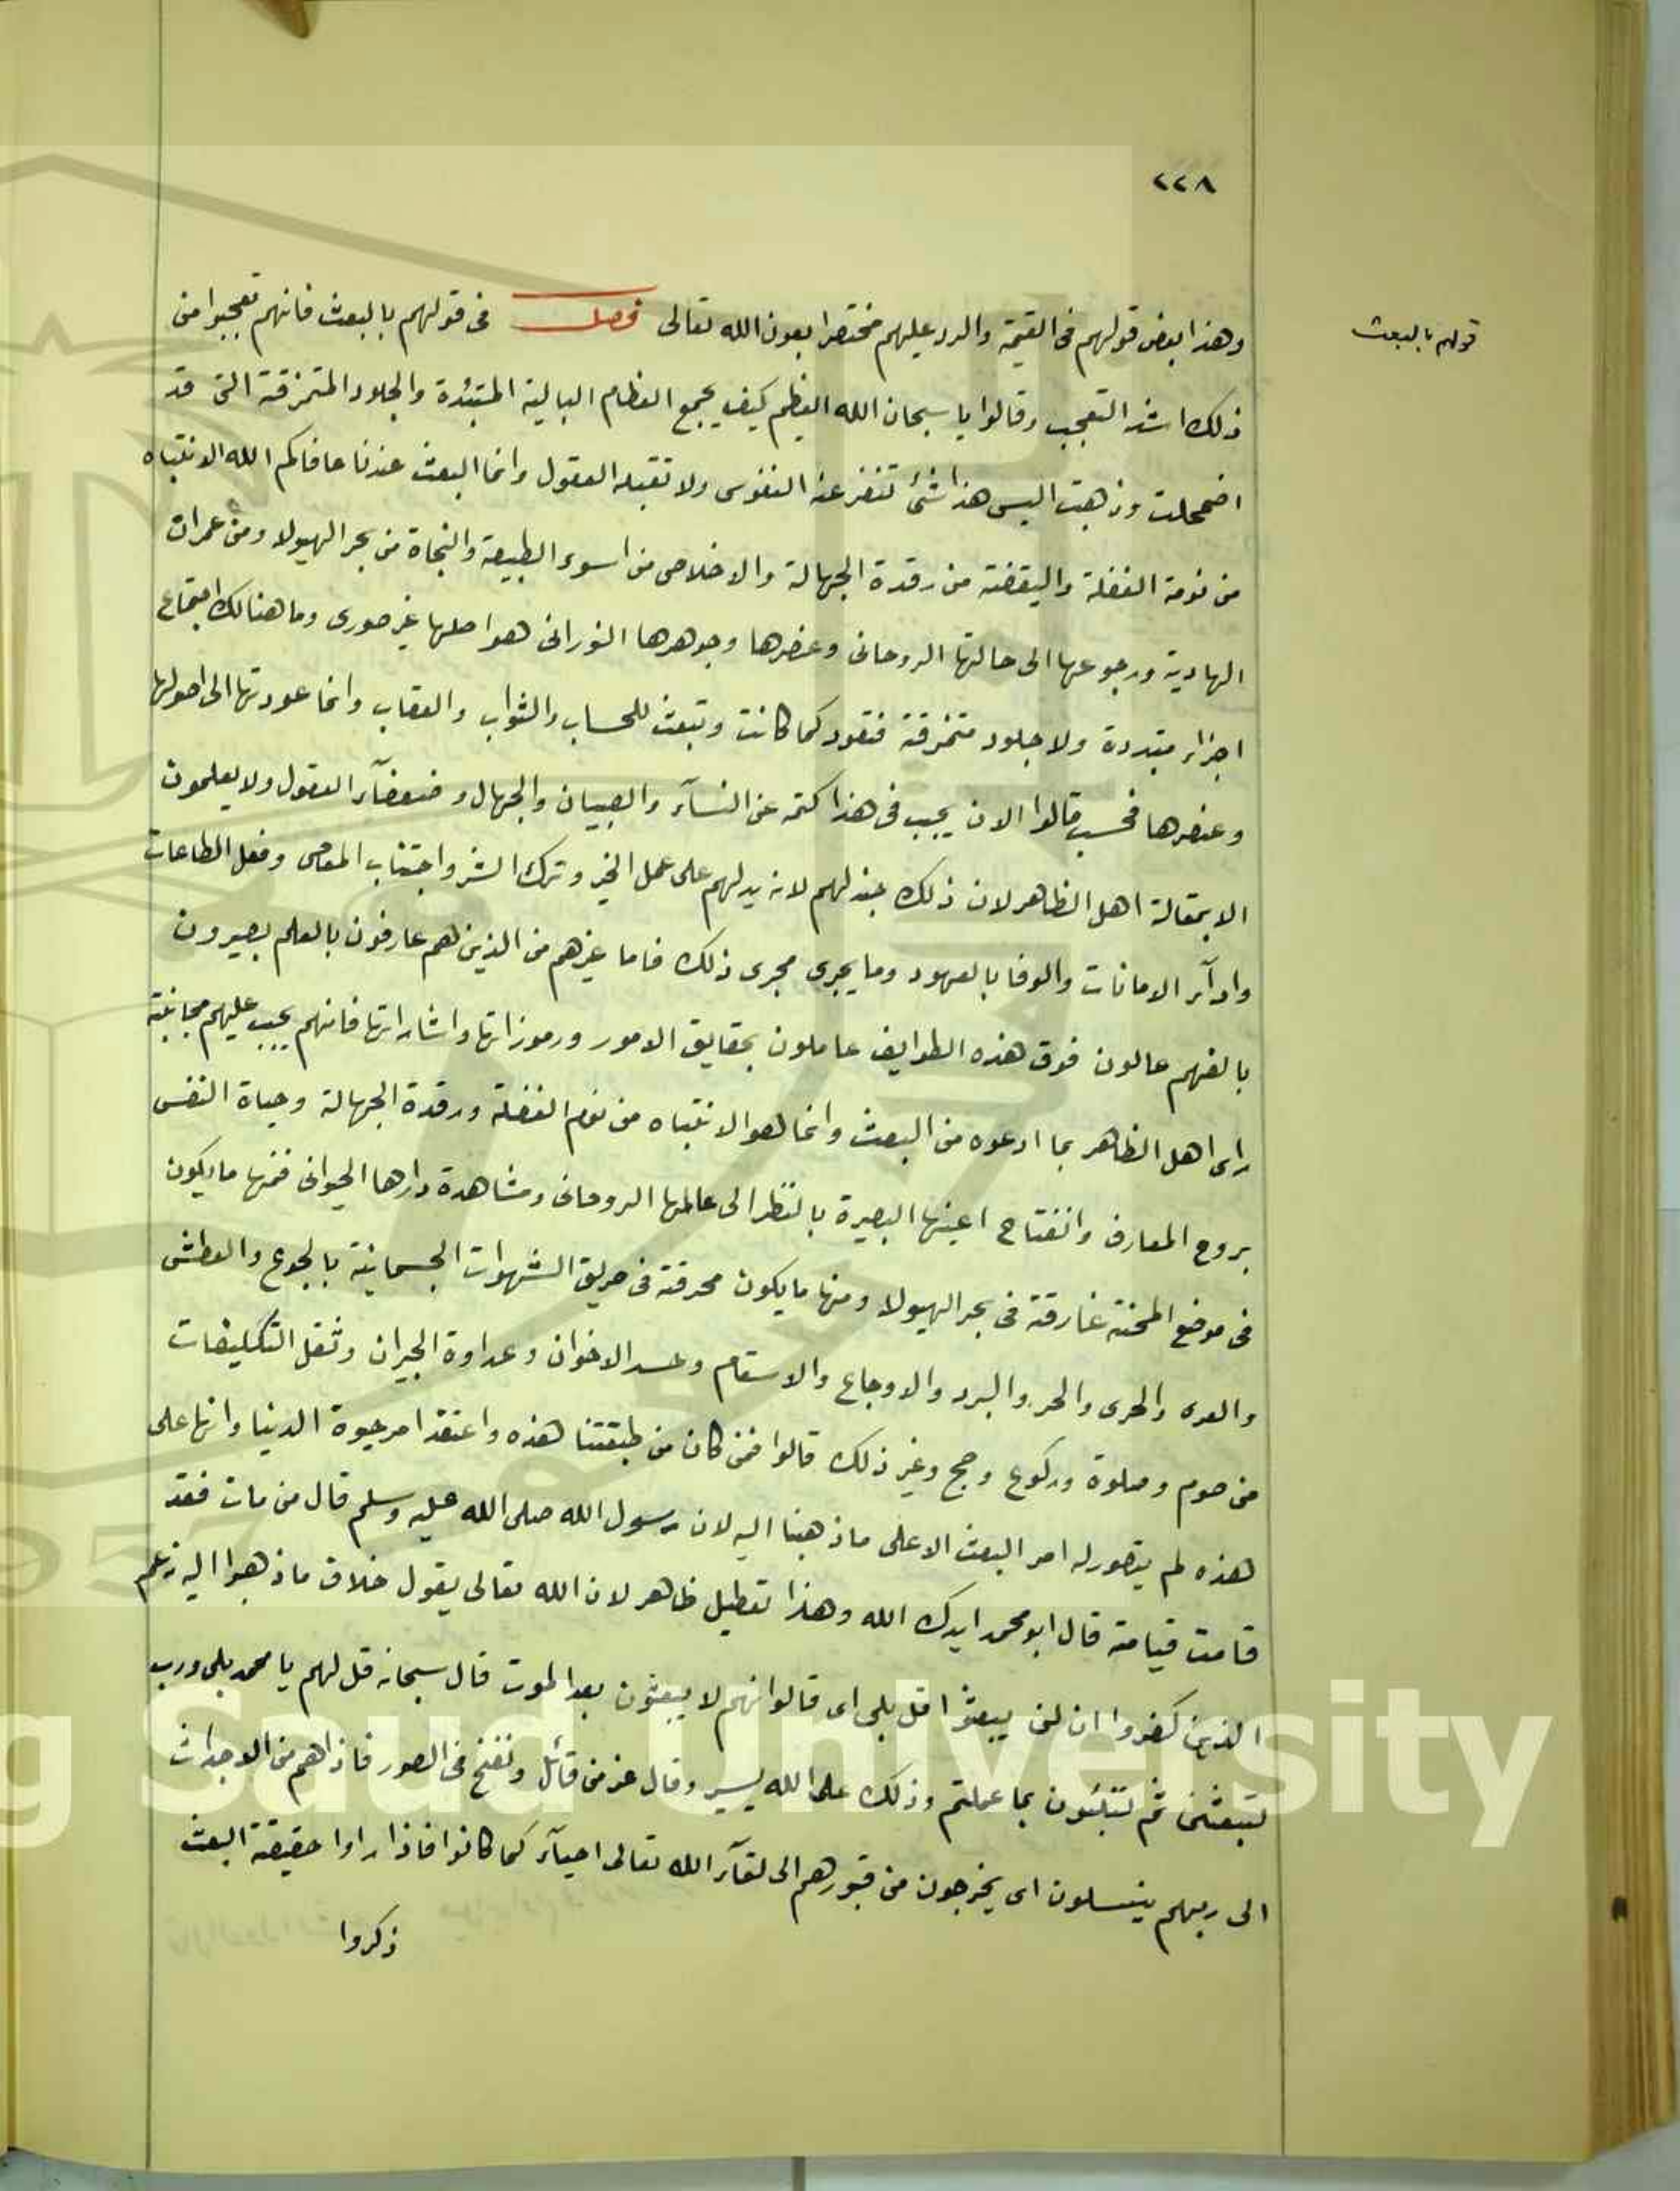 ٢٢٨
قولهم بالبعث
وهذا بعض قولهم فى القيمة والرد عليهم مختصرا بعون الله تعالى فصل فى قولهم بالبعث فانهم تعجبوا من
ذلك اشد التعجب وقالوا يا سبحان الله العظيم كيف يجمع العظام البالية المتبددة والجلود المتمزقة التى قد
اضمحلت وذهبت اليس هذا شئ تنفر عنه النفوس ولا تقبله العقول وانما البعث عندنا عافاكم الله الانتباه
من نومة الغفلة واليقضته من رقدة الجهالة والاخلاص من اسوء الطبيعة والنجاة من بحر الهيولا ومن غمرات
الهادية ورجوعها الى حالتها الروحانى وعنصرها وجوهرها النورانى هو اصلها غير صورى وما هنالك اجتماع
اجزاء متبددة ولا جلود متمزقة فتعود كما كانت وتبعث للحساب والثواب والعقاب وانما عودتها الى اصولها
وعنصرها فحسب قالوا الان يجب فى هذا كتمه عن النسآء والصبيان والجهال وضعفآء العقول ولا يعلمون
الا بمقالة اهل الظاهر لان ذلك جيد لهم لانه يدلهم على عمل الخير وترك الشر واجتناب المعاصى وفعل الطاعات
وادآء الامانات والوفا بالعهود وما يجرى مجرى ذلك فاما غيرهم من الذين هم عارفون بالعلم بصيرون
بالفهم عالون فوق هذه الطوايف عاملون بحقايق الامور ورموزاتها واشاراتها فانهم يجب عليهم مجانبة
راى اهل الظاهر بما ادعوه من البعث وانما هو الانتباه من نوم الغفلة ورقدة الجهالة وحياة النفس
بروح المعارف وانفتاح اعينها البصيرة بالنظر الى عالمها الروحانى ومشاهدة دارها الحيوانى فمنها ما يكون
فى موضع المحنة غارقة فى بحر الهيولا ومنها ما يكون محرقة فى حريق الشهوات الجسمانية بالجوع والعطش
والعرى والحرى والحر والبرد والاوجاع والاسقام وحسد الاخوان وعداوة الجيران وثقل التكليفات
من صوم وصلوة وركوع وحج وغير ذلك قالوا فمن كان من طبقتنا هذه واعتقد امر حيوة الدينا وانها على
هذه لم يتصور له امر البعث الا على ما ذهبنا اليه لان رسول الله صلى الله عليه وسلم قال من مات فقد
قامت قيامته قال ابو محمد ايدك الله وهذا تعطيل ظاهر لان الله تعالى يقول خلاف ما ذهبوا اليه زعم
الذين كفروا ان لن يبعثوا قل بلى اى قالوا انهم لا يبعثون بعد الموت قال سبحانه قل لهم يا محمد بلى وربى
لتبعثن ثم لتنبئون بما عملتم وذلك على الله يسير وقال عز من قائل ونفخ فى الصور فاذا هم من الاجداث
الى ربهم ينسلون اى يخرجون من قبورهم الى لقآء الله تعالى احيآء كما كانوا فاذا راوا حقيقة البعث
ذكروا
King Saud University
1957